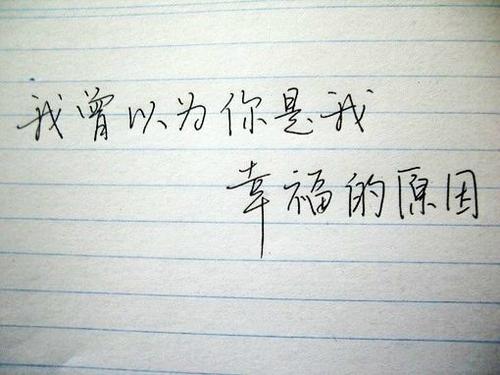 我曾以为你是我
幸福的原因